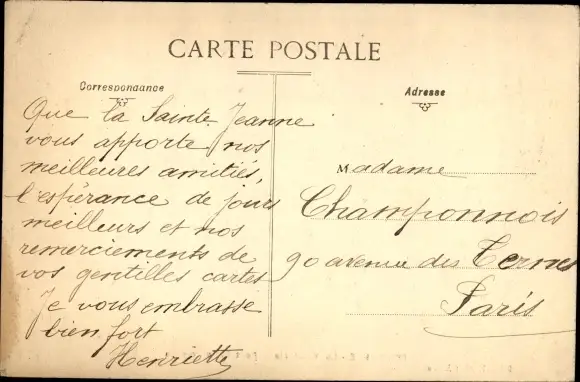 CARTE POSTALE
Correspondance
Que la Sainte Jeanne
vous apporte nos
meilleures amitiés,
l'espérance de jours
meilleurs et nos
remerciements de
vos gentilles cartes
Je vous embrasse
bien fort
Henriette
Adresse
Madame
Champonnois
90 avenue des Ternes
Paris